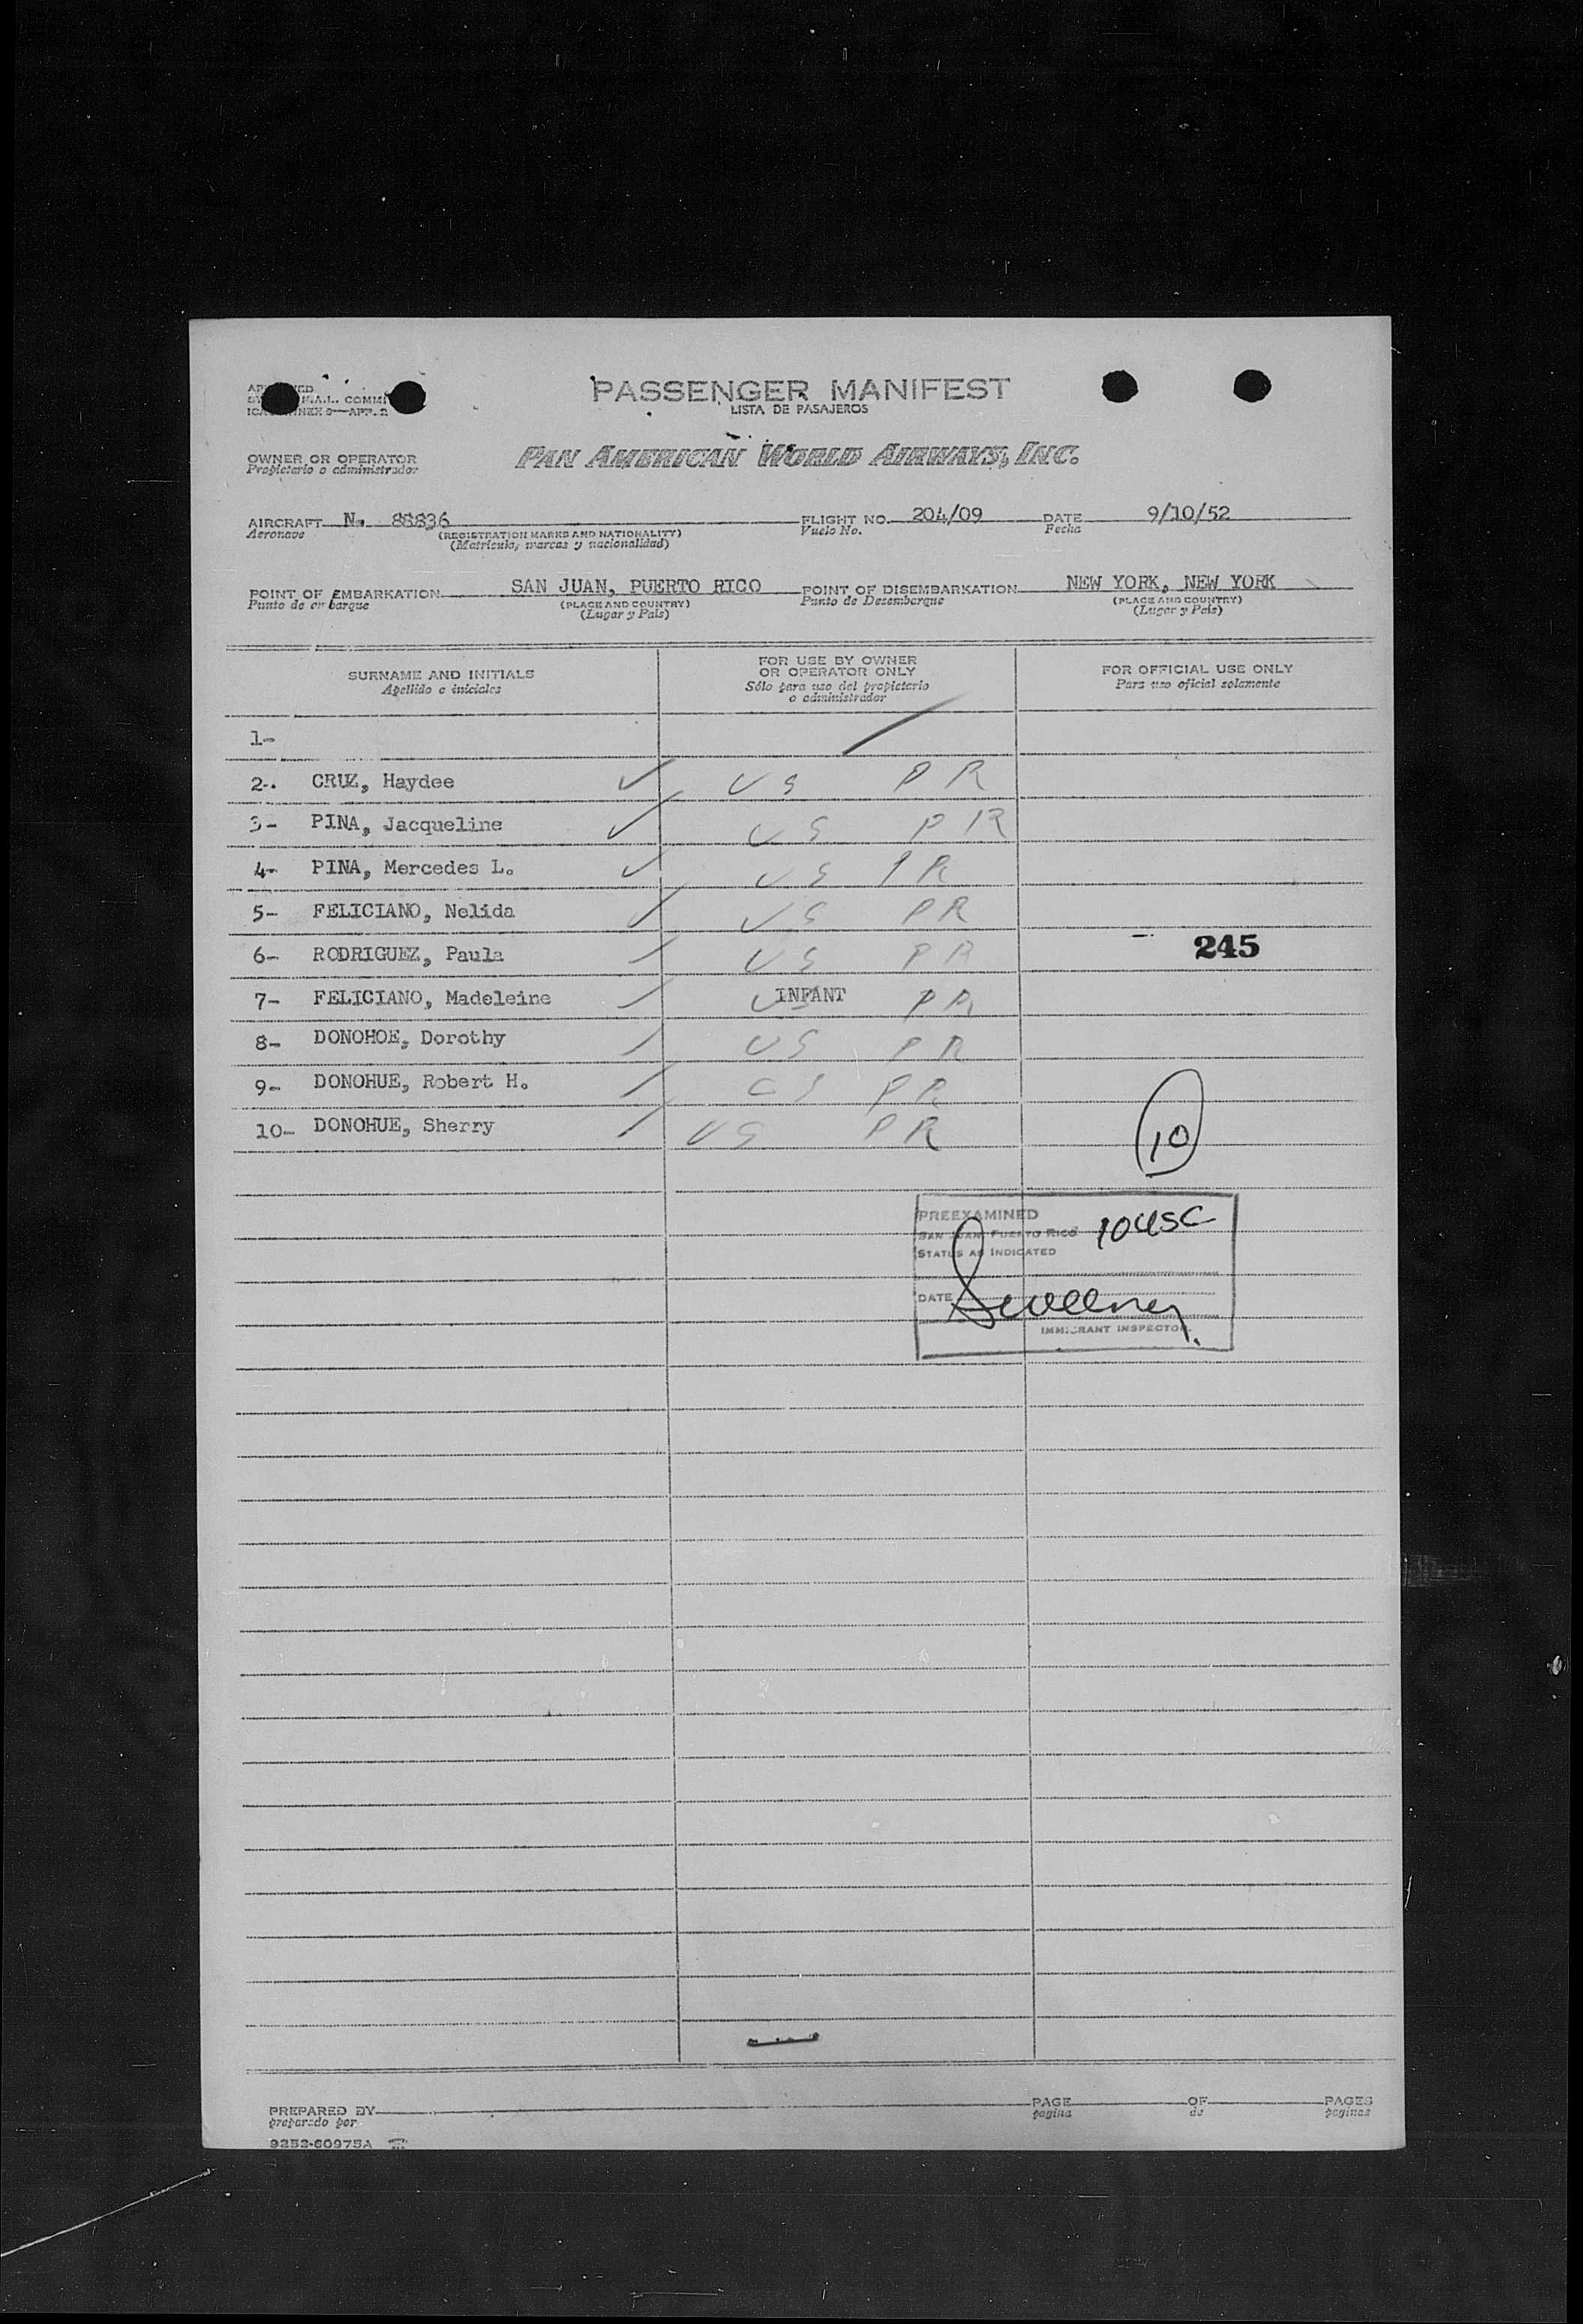 PASSENGER MANIFEST
LISTA DE PASAJEROS
COMMI
APP. 2
OWNER OR OPERATOR
Propietario o administrador
PAN AMERICAN WORLD AIRWAYS, INC.
AIRCRAFT N. 88836 FLIGHT NO. 204/09 DATE 9/10/52
Aeronave (REGISTRATION MARKS AND NATIONALITY) Vuelo No. Fecha
(Matricula, marcas y nacionalidad)
POINT OF EMBARKATION SAN JUAN, PUERTO RICO POINT OF DISEMBARKATION NEW YORK, NEW YORK
Punto de embarque (PLACE AND COUNTRY) Punto de Desembarque (PLACE AND COUNTRY)
(Lugar y País) (Lugar y País)
SURNAME AND INITIALS
Apellido e iniciales
FOR USE BY OWNER
OR OPERATOR ONLY
Sólo para uso del propietario
o administrador
FOR OFFICIAL USE ONLY
Para uso oficial solamente
1-
2-. CRUZ, Haydee US PR
3- PINA, Jacqueline US PR
4- PINA, Mercedes L. US PR
5- FELICIANO, Nelida US PR
6- RODRIGUEZ, Paula US PR 245
7- FELICIANO, Madeleine US INFANT PR
8- DONOHOE, Dorothy US PR
9- DONOHUE, Robert H. US PR
10- DONOHUE, Sherry US PR
10
PREEXAMINED 10 USC
SAN JUAN PUERTO RICO
STATUS AS INDICATED
DATE
IMMIGRANT INSPECTOR.
PREPARED BY PAGE OF PAGES
preparado por pagina de paginas
9252-60975A